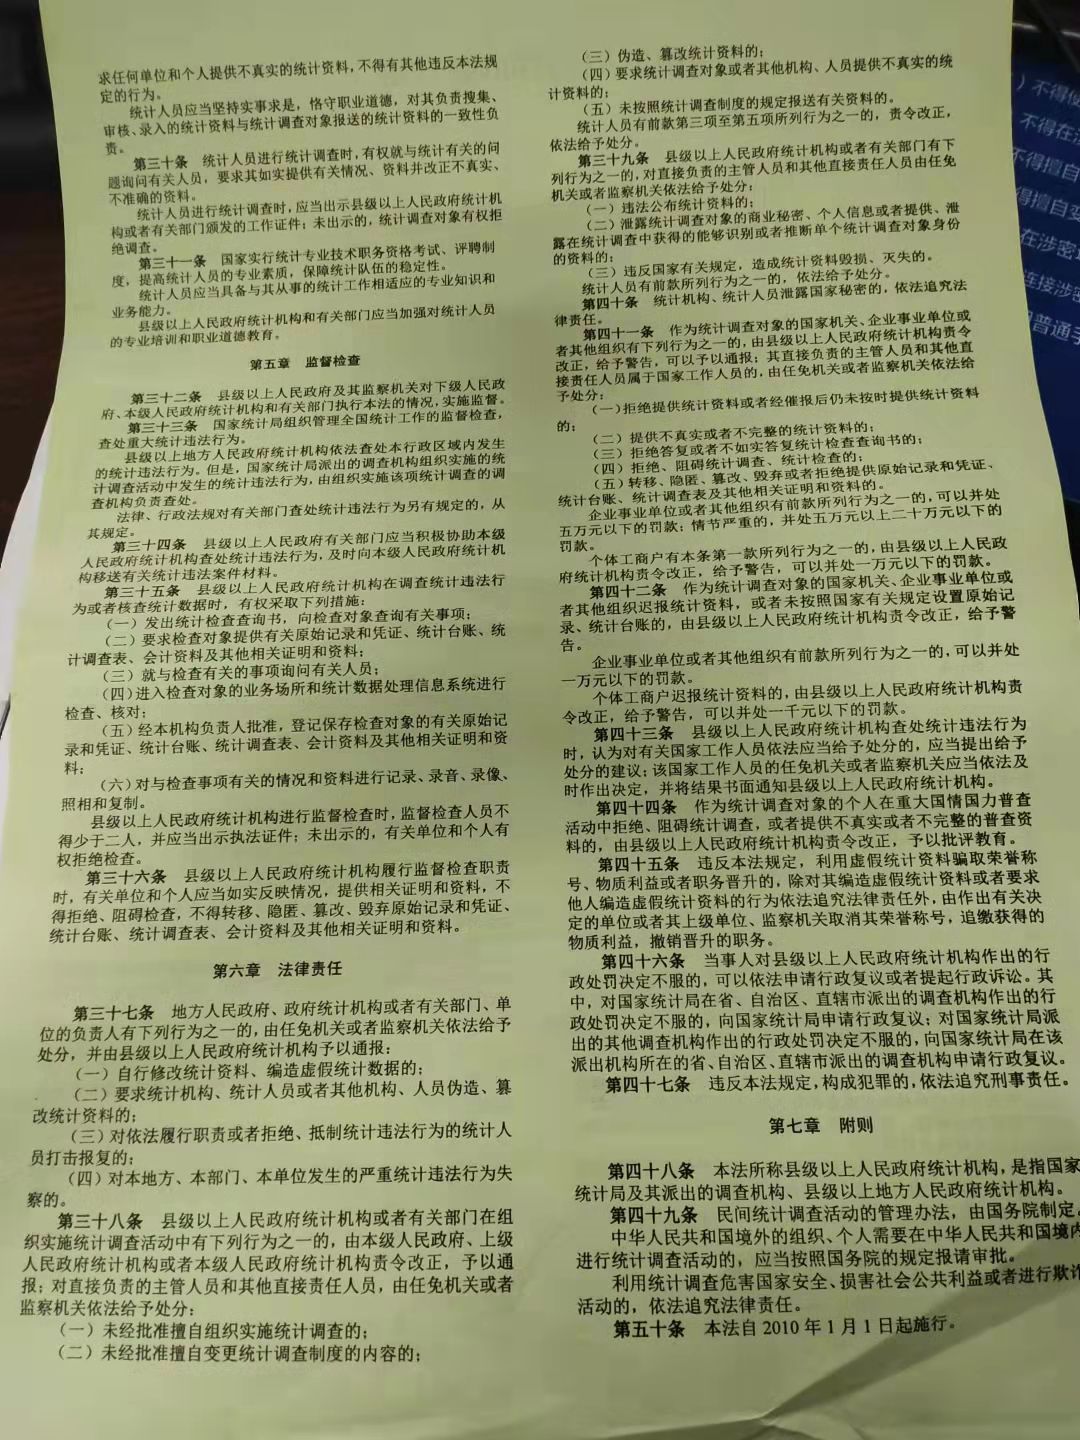 求任何单位和个人提供不真实的统计资料,不得有其他违反本法规
定的行为。
统计人员应当坚持实事求是,恪守职业道德,对其负责搜集、
审核、录入的统计资料与统计调查对象报送的统计资料的一致性负
责。
第三十条 统计人员进行统计调查时,有权就与统计有关的问
题询问有关人员,要求其如实提供有关情况、资料并改正不真实、
不准确的资料。
统计人员进行统计调查时,应当出示县级以上人民政府统计机
构或者有关部门颁发的工作证件;未出示的,统计调查对象有权拒
绝调查。
第三十一条 国家实行统计专业技术职务资格考试、评聘制
度,提高统计人员的专业素质,保障统计队伍的稳定性。
统计人员应当具备与其从事的统计工作相适应的专业知识和
业务能力。
县级以上人民政府统计机构和有关部门应当加强对统计人员
的专业培训和职业道德教育。
第五章 监督检查
第三十二条 县级以上人民政府及其监察机关对下级人民政
府、本级人民政府统计机构和有关部门执行本法的情况,实施监督。
第三十三条 国家统计局组织管理全国统计工作的监督检查,
查处重大统计违法行为。
县级以上地方人民政府统计机构依法查处本行政区域内发生
的统计违法行为。但是,国家统计局派出的调查机构组织实施的统
计调查活动中发生的统计违法行为,由组织实施该项统计调查的调
查机构负责查处。
法律、行政法规对有关部门查处统计违法行为另有规定的,从
其规定。
第三十四条 县级以上人民政府有关部门应当积极协助本级
人民政府统计机构查处统计违法行为,及时向本级人民政府统计机
构移送有关统计违法案件材料。
第三十五条 县级以上人民政府统计机构在调查统计违法行
为或者核查统计数据时,有权采取下列措施:
(一)发出统计检查查询书,向检查对象查询有关事项;
(二)要求检查对象提供有关原始记录和凭证、统计台账、统
计调查表、会计资料及其他相关证明和资料;
(三)就与检查有关的事项询问有关人员;
(四)进入检查对象的业务场所和统计数据处理信息系统进行
检查、核对;
(五)经本机构负责人批准,登记保存检查对象的有关原始记
录和凭证、统计台账、统计调查表、会计资料及其他相关证明和资
料;
(六)对与检查事项有关的情况和资料进行记录、录音、录像、
照相和复制。
县级以上人民政府统计机构进行监督检查时,监督检查人员不
得少于二人,并应当出示执法证件;未出示的,有关单位和个人有
权拒绝检查。
第三十六条 县级以上人民政府统计机构履行监督检查职责
时,有关单位和个人应当如实反映情况,提供相关证明和资料,不
得拒绝、阻碍检查,不得转移、隐匿、篡改、毁弃原始记录和凭证、
统计台账、统计调查表、会计资料及其他相关证明和资料。
第六章 法律责任
第三十七条 地方人民政府、政府统计机构或者有关部门、单
位的负责人有下列行为之一的,由任免机关或者监察机关依法给予
处分,并由县级以上人民政府统计机构予以通报:
(一)自行修改统计资料、编造虚假统计数据的;
(二)要求统计机构、统计人员或者其他机构、人员伪造、篡
改统计资料的;
(三)对依法履行职责或者拒绝、抵制统计违法行为的统计人
员打击报复的;
(四)对本地方、本部门、本单位发生的严重统计违法行为失
察的。
第三十八条 县级以上人民政府统计机构或者有关部门在组
织实施统计调查活动中有下列行为之一的,由本级人民政府、上级
人民政府统计机构或者本级人民政府统计机构责令改正,予以通
报;对直接负责的主管人员和其他直接责任人员,由任免机关或者
监察机关依法给予处分:
(一)未经批准擅自组织实施统计调查的;
(二)未经批准擅自变更统计调查制度的内容的;
(三)伪造、篡改统计资料的;
(四)要求统计调查对象或者其他机构、人员提供不真实的统
计资料的;
(五)未按照统计调查制度的规定报送有关资料的。
统计人员有前款第三项至第五项所列行为之一的,责令改正,
依法给予处分。
第三十九条 县级以上人民政府统计机构或者有关部门有下
列行为之一的,对直接负责的主管人员和其他直接责任人员由任免
机关或者监察机关依法给予处分:
(一)违法公布统计资料的;
(二)泄露统计调查对象的商业秘密、个人信息或者提供、泄
露在统计调查中获得的能够识别或者推断单个统计调查对象身份
的资料的;
(三)违反国家有关规定,造成统计资料毁损、灭失的。
统计人员有前款所列行为之一的,依法给予处分。
第四十条 统计机构、统计人员泄露国家秘密的,依法追究法
律责任。
第四十一条 作为统计调查对象的国家机关、企业事业单位或
者其他组织有下列行为之一的,由县级以上人民政府统计机构责令
改正,给予警告,可以予以通报;其直接负责的主管人员和其他直
接责任人员属于国家工作人员的,由任免机关或者监察机关依法给
予处分:
(一)拒绝提供统计资料或者经催报后仍未按时提供统计资料
的;
(二)提供不真实或者不完整的统计资料的;
(三)拒绝答复或者不如实答复统计检查查询书的;
(四)拒绝、阻碍统计调查、统计检查的;
(五)转移、隐匿、篡改、毁弃或者拒绝提供原始记录和凭证、
统计台账、统计调查表及其他相关证明和资料的。
企业事业单位或者其他组织有前款所列行为之一的,可以并处
五万元以下的罚款;情节严重的,并处五万元以上二十万元以下的
罚款。
个体工商户有本条第一款所列行为之一的,由县级以上人民政
府统计机构责令改正,给予警告,可以并处一万元以下的罚款。
第四十二条 作为统计调查对象的国家机关、企业事业单位或
者其他组织迟报统计资料,或者未按照国家有关规定设置原始记
录、统计台账的,由县级以上人民政府统计机构责令改正,给予警
告。
企业事业单位或者其他组织有前款所列行为之一的,可以并处
一万元以下的罚款。
个体工商户迟报统计资料的,由县级以上人民政府统计机构责
令改正,给予警告,可以并处一千元以下的罚款。
第四十三条 县级以上人民政府统计机构查处统计违法行为
时,认为对有关国家工作人员依法应当给予处分的,应当提出给予
处分的建议;该国家工作人员的任免机关或者监察机关应当依法及
时作出决定,并将结果书面通知县级以上人民政府统计机构。
第四十四条 作为统计调查对象的个人在重大国情国力普查
活动中拒绝、阻碍统计调查,或者提供不真实或者不完整的普查资
料的,由县级以上人民政府统计机构责令改正,予以批评教育。
第四十五条 违反本法规定,利用虚假统计资料骗取荣誉称
号、物质利益或者职务晋升的,除对其编造虚假统计资料或者要求
他人编造虚假统计资料的行为依法追究法律责任外,由作出有关决
定的单位或者其上级单位、监察机关取消其荣誉称号,追缴获得的
物质利益,撤销晋升的职务。
第四十六条 当事人对县级以上人民政府统计机构作出的行
政处罚决定不服的,可以依法申请行政复议或者提起行政诉讼。其
中,对国家统计局在省、自治区、直辖市派出的调查机构作出的行
政处罚决定不服的,向国家统计局申请行政复议;对国家统计局派
出的其他调查机构作出的行政处罚决定不服的,向国家统计局在该
派出机构所在的省、自治区、直辖市派出的调查机构申请行政复议。
第四十七条 违反本法规定,构成犯罪的,依法追究刑事责任。
第七章 附则
第四十八条 本法所称县级以上人民政府统计机构,是指国家
统计局及其派出的调查机构、县级以上地方人民政府统计机构。
第四十九条 民间统计调查活动的管理办法,由国务院制定。
中华人民共和国境外的组织、个人需要在中华人民共和国境内
进行统计调查活动的,应当按照国务院的规定报请审批。
利用统计调查危害国家安全、损害社会公共利益或者进行欺诈
活动的,依法追究法律责任。
第五十条 本法自2010年1月1日起施行。
)不得使
不得在涉
不得擅自
得擅自变
在涉密
连接涉密
普通手